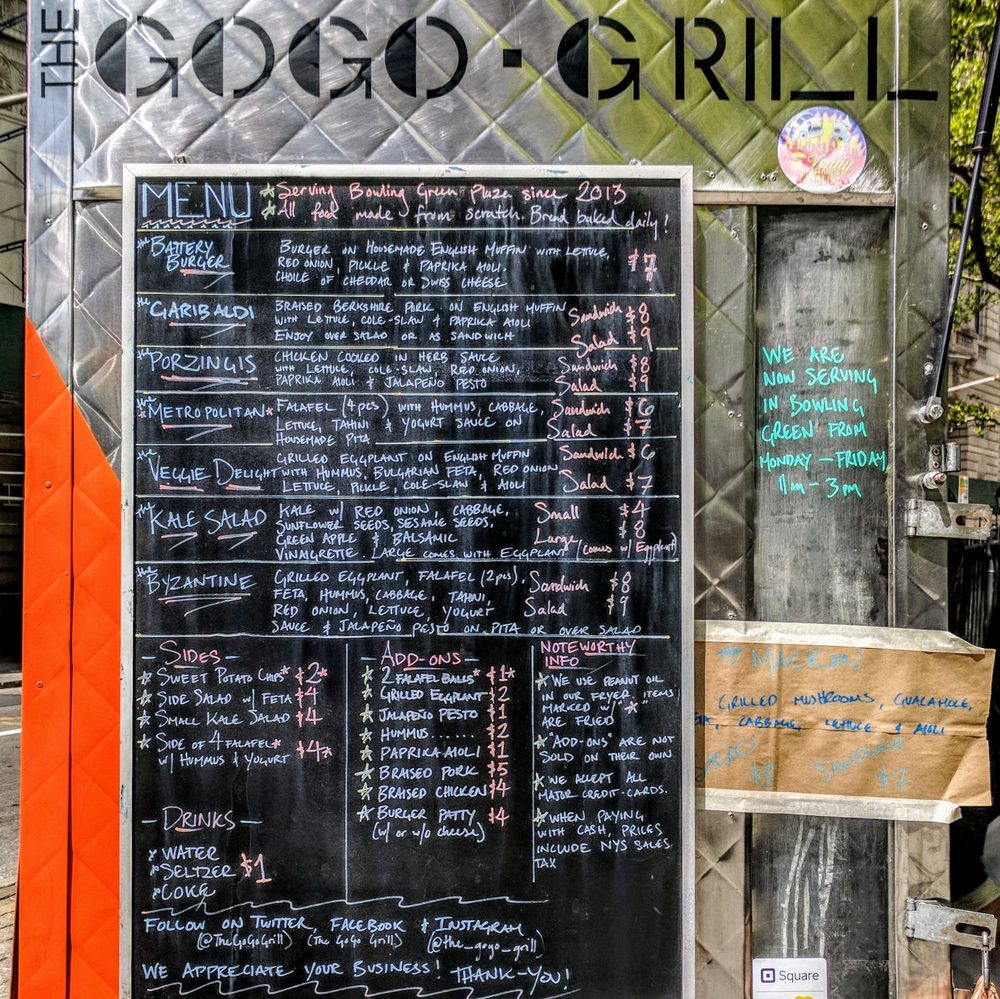 THE GOGO·GRILL
MENU
☆Serving Bowling Green Plaza since 2013
☆All food made from scratch. Bread baked daily!
the BATTERY BURGER
BURGER ON HOUSEMADE ENGLISH MUFFIN WITH LETTUCE,
RED ONION, PICKLE & PAPRIKA AIOLI.
CHOICE OF CHEDDAR OR SWISS CHEESE
$7
the GARIBALDI
BRAISED BERKSHIRE PORK ON ENGLISH MUFFIN
WITH LETTUCE, COLE-SLAW & PAPRIKA AIOLI
ENJOY OVER SALAD OR AS SANDWICH
Sandwich $8
Salad $9
the PORZINGIS
CHICKEN COOKED IN HERB SAUCE
WITH LETTUCE, COLE-SLAW, RED ONION,
PAPRIKA AIOLI & JALAPEÑO PESTO
Sandwich $8
Salad $9
the *METROPOLITAN*
FALAFEL (4 pcs) WITH HUMMUS, CABBAGE,
LETTUCE, TAHINI & YOGURT SAUCE ON
HOUSEMADE PITA
Sandwich $6
Salad $7
the VEGGIE DELIGHT
GRILLED EGGPLANT ON ENGLISH MUFFIN
WITH HUMMUS, BULGARIAN FETA, RED ONION
LETTUCE, PICKLE, COLE-SLAW & AIOLI
Sandwich $6
Salad $7
the KALE SALAD
KALE W/ RED ONION, CABBAGE,
SUNFLOWER SEEDS, SESAME SEEDS,
GREEN APPLE & BALSAMIC
VINAIGRETTE. LARGE COMES WITH EGGPLANT
Small $4
Large $8
(comes w/ Eggplant)
the BYZANTINE
GRILLED EGGPLANT, FALAFEL (2 pcs),
FETA, HUMMUS, CABBAGE, TAHINI,
RED ONION, LETTUCE, YOGURT
SAUCE & JALAPEÑO PESTO ON PITA OR OVER SALAD
Sandwich $8
Salad $9
- SIDES -
☆ SWEET POTATO CHIPS* $2*
☆ SIDE SALAD W/ FETA $4
☆ SMALL KALE SALAD $4
☆ SIDE OF 4 FALAFEL* $4*
W/ HUMMUS & YOGURT
- DRINKS -
☆ WATER
☆ SELTZER $1
☆ COKE
- ADD-ONS -
☆ 2 FALAFEL BALLS* $1*
☆ GRILLED EGGPLANT $2
☆ JALAPEÑO PESTO $1
☆ HUMMUS ...... $2
☆ PAPRIKA AIOLI $1
☆ BRAISED PORK $5
☆ BRAISED CHICKEN $4
☆ BURGER PATTY $4
(w/ or w/o cheese)
NOTEWORTHY
INFO
☆ WE USE PEANUT OIL
IN OUR FRYER. ITEMS
MARKED W/ "*"
ARE FRIED
☆ "ADD-ONS" ARE NOT
SOLD ON THEIR OWN
☆ WE ACCEPT ALL
MAJOR CREDIT-CARDS.
☆ WHEN PAYING
WITH CASH, PRICES
INCLUDE NYS SALES
TAX
FOLLOW ON TWITTER, FACEBOOK & INSTAGRAM
(@TheGoGoGrill) (The GoGo Grill) (@the_gogo_grill)
WE APPRECIATE YOUR BUSINESS! THANK-YOU!
WE ARE
NOW SERVING
IN BOWLING
GREEN FROM
MONDAY - FRIDAY
11 AM - 3 PM
GRILLED MUSHROOMS, GUACAMOLE,
CABBAGE, LETTUCE & AIOLI
$8
SANDWICH
$7
Vendy
Square